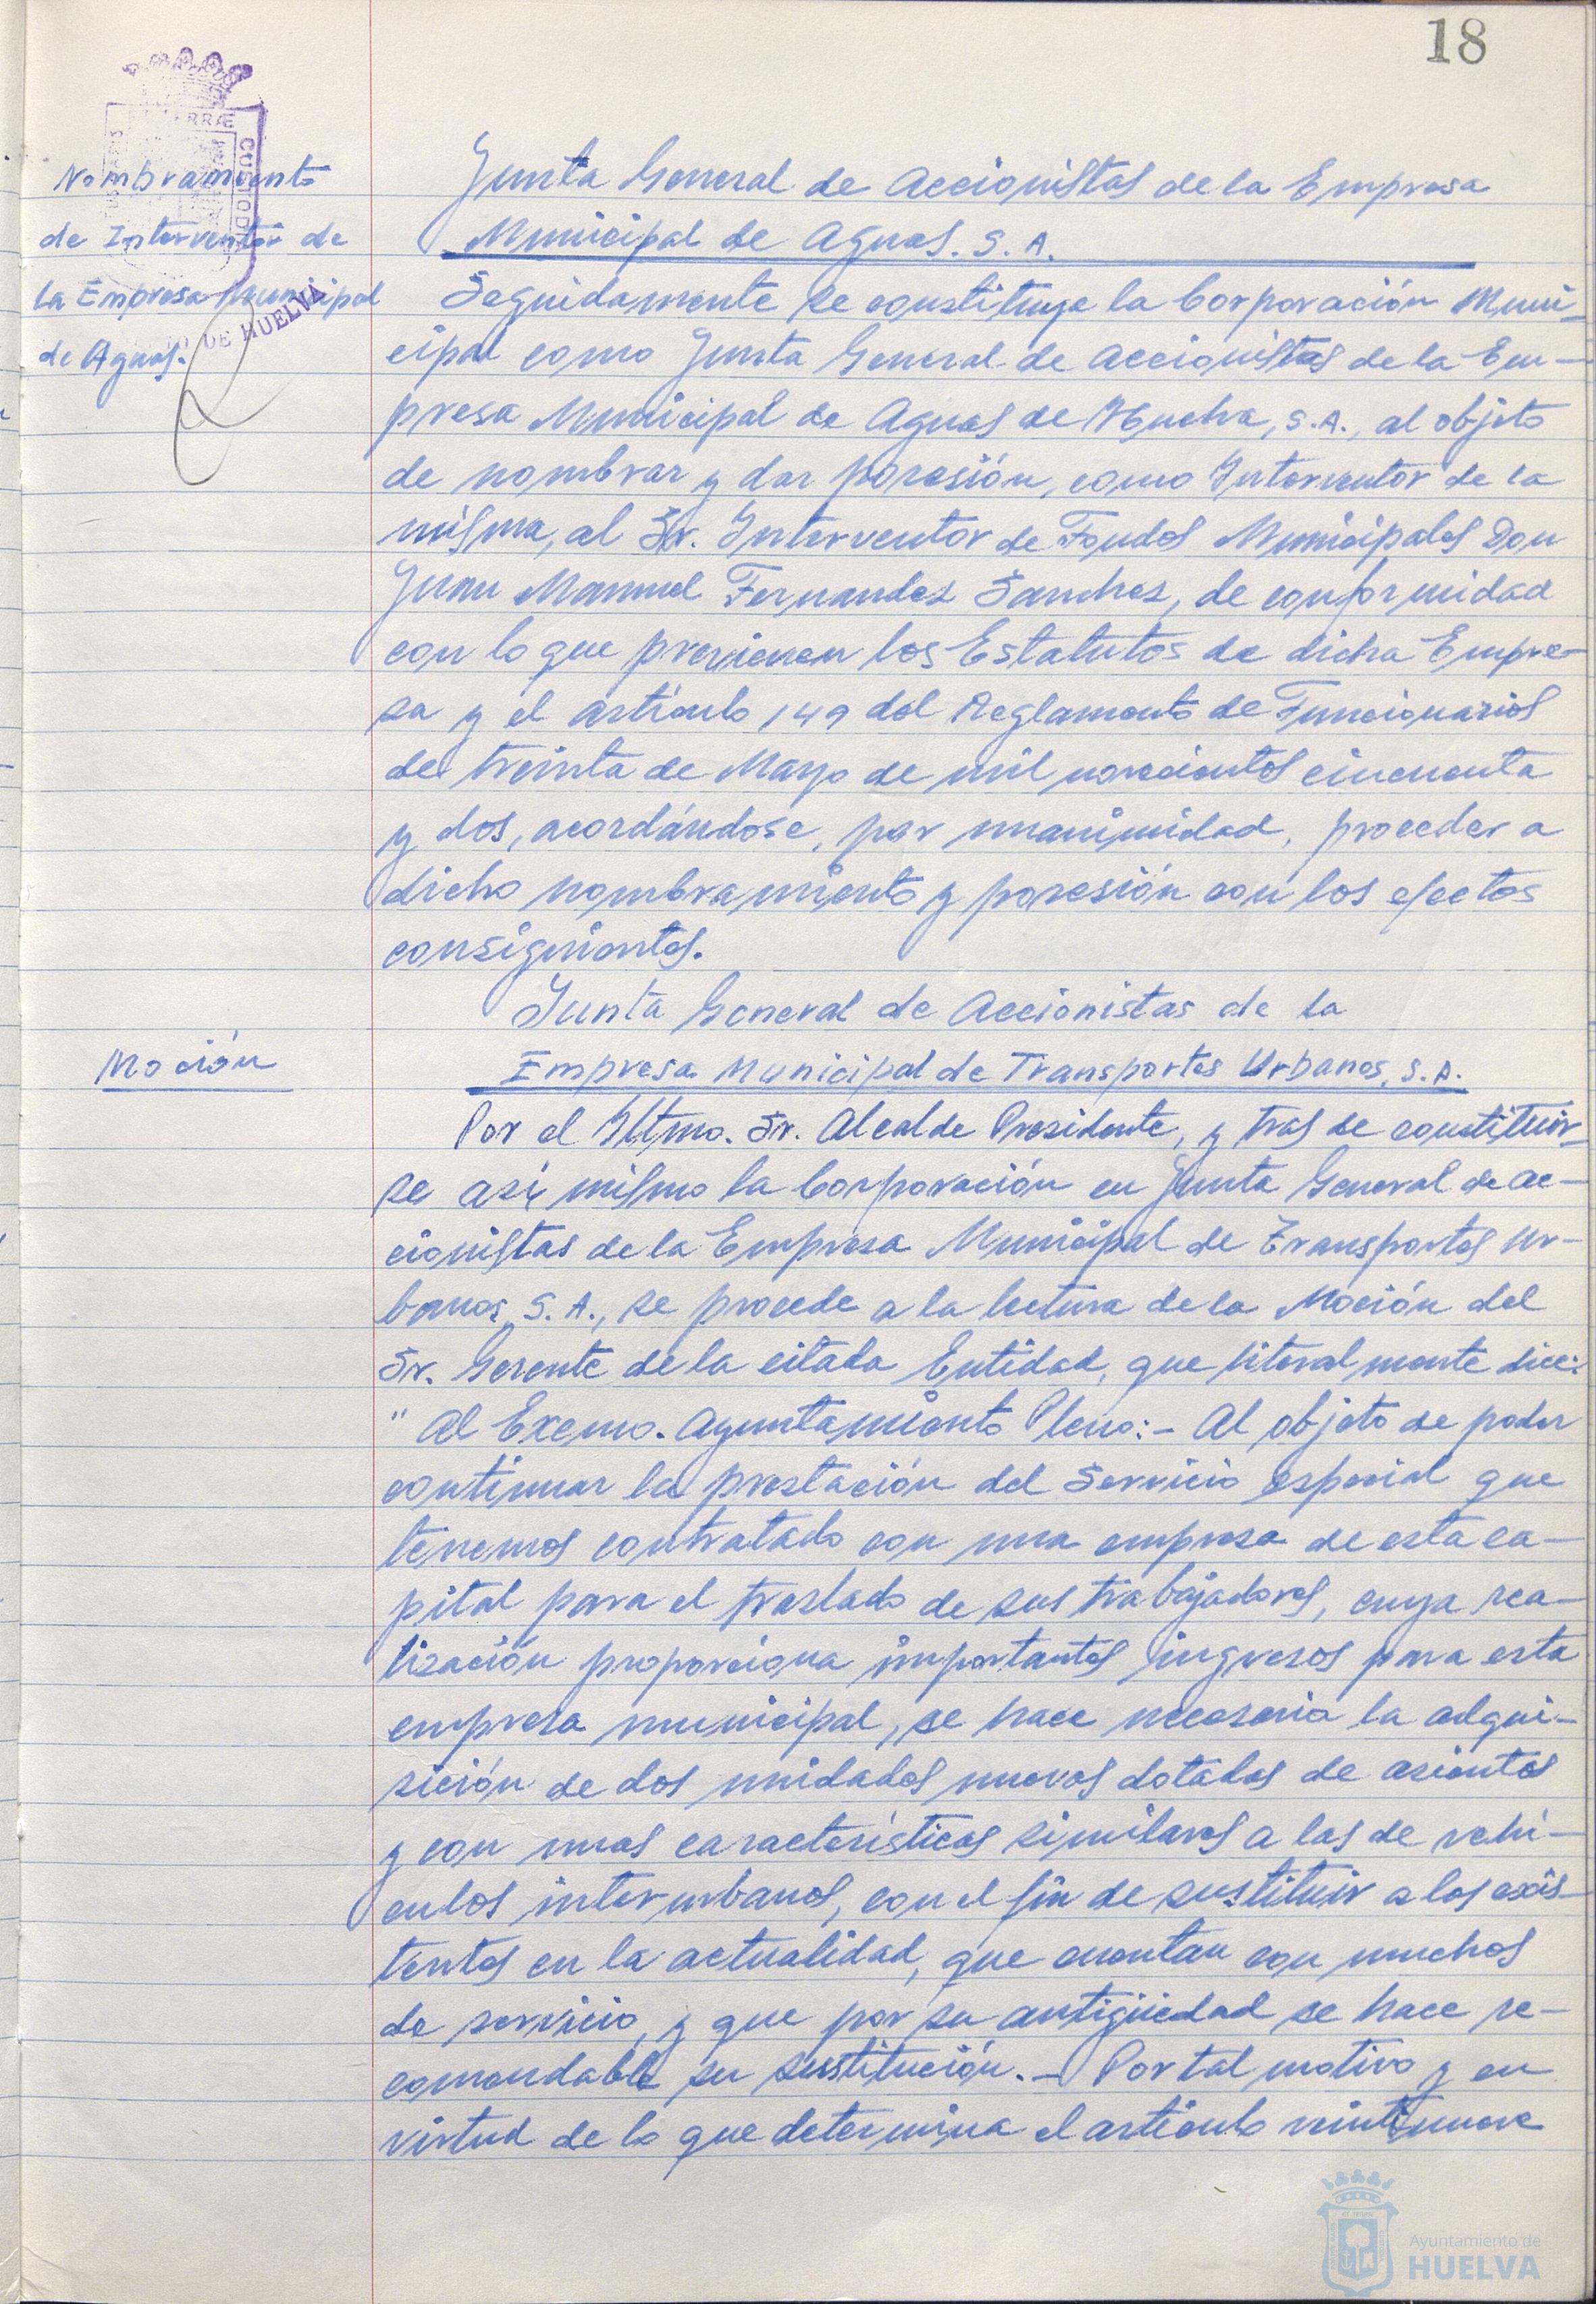 18
Nombramiento
de Interventor de
la Empresa Municipal
de Aguas.
TERRÆ
CUSTODIA
DE HUELVA
Junta General de Accionistas de la Empresa
Municipal de Aguas. S. A.
Seguidamente se constituye la Corporación Muni-
cipal como Junta General de Accionistas de la Em-
presa Municipal de Aguas de Huelva, S.A., al objeto
de nombrar y dar posesión, como Interventor de la
misma, al Sr. Interventor de Fondos Municipales Don
Juan Manuel Fernandez Sanchez, de conformidad
con lo que previenen los Estatutos de dicha Empre-
sa y el artículo 149 del Reglamento de Funcionarios
de treinta de Mayo de mil novecientos cincuenta
y dos, acordándose, por unanimidad, proceder a
dicho nombramiento y posesión con los efectos
consiguientes.
Moción
Junta General de Accionistas de la
Empresa Municipal de Transportes Urbanos, S.A.
Por el Iltmo. Sr. Alcalde Presidente, y tras de constituir-
se así mismo la Corporación en Junta General de Ac-
cionistas de la Empresa Municipal de Transportes Ur-
banos, S.A., se procede a la lectura de la Moción del
Sr. Gerente de la citada Entidad, que literalmente dice:
" Al Excmo. Ayuntamiento Pleno:- Al objeto de poder
continuar la prestación del Servicio especial que
tenemos contratado con una empresa de esta ca-
pital para el traslado de sus trabajadores, cuya rea-
lización proporciona importantes ingresos para esta
empresa municipal, se hace necesaria la adqui-
sición de dos unidades nuevas dotadas de asientos
y con unas características similares a las de vehí-
culos interurbanos, con el fin de sustituir a los exis-
tentes en la actualidad, que cuentan con muchos
de servicio, y que por su antigüedad se hace re-
comendable su sustitución.- Por tal motivo y en
virtud de lo que determina el artículo veintinueve
Ayuntamiento de
HUELVA